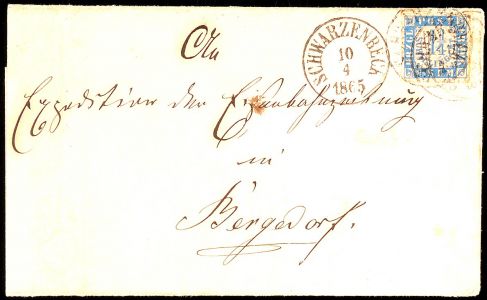 An
SCHWARZENBECK
10
4
1865
Expedition der Eisenbahnzeitung
in
Bergedorf.